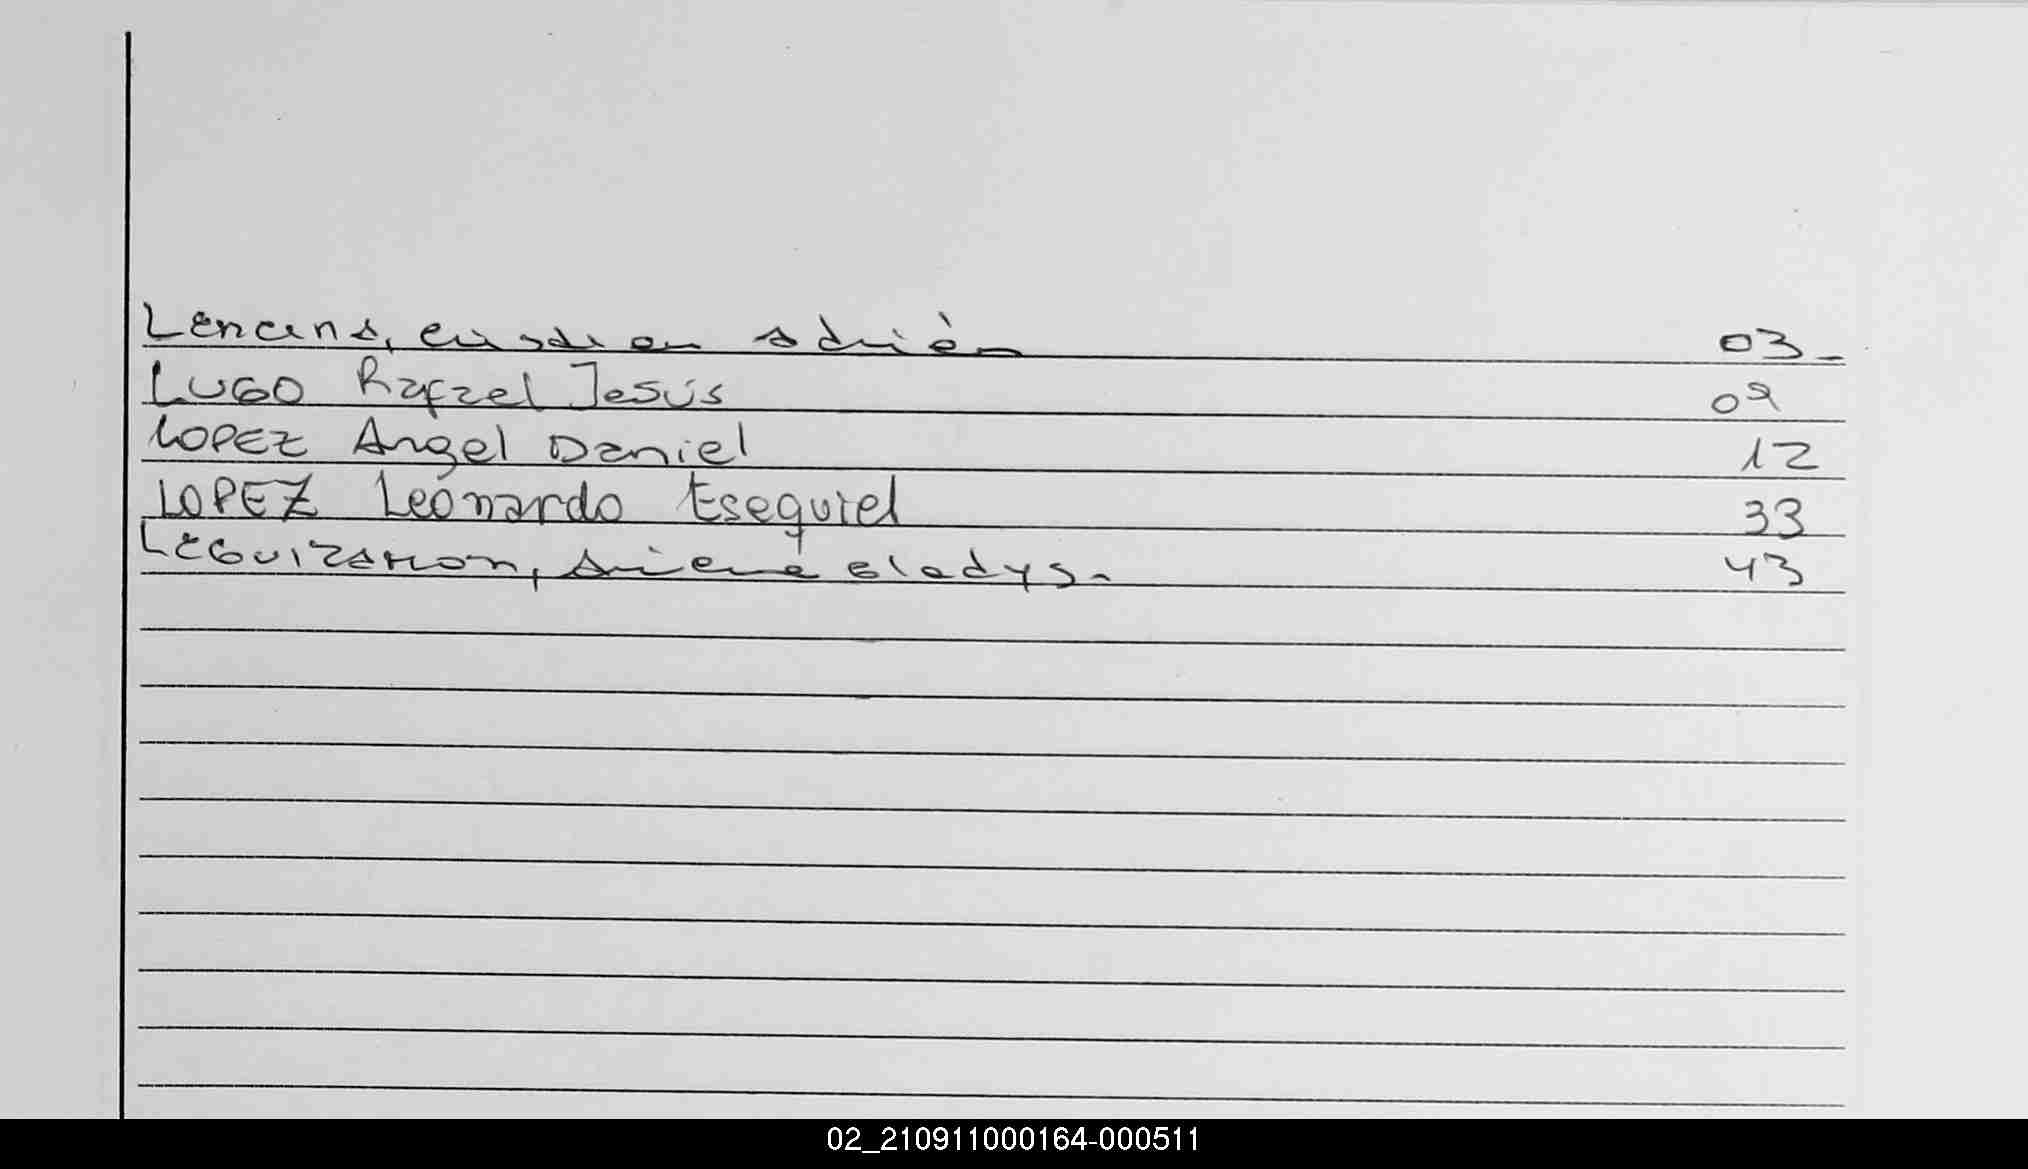 Lencina, Adrián 03-
LUGO Rafael Jesús 09
LOPEZ Angel Daniel 12
LOPEZ Leonardo Esequiel 33
LEGUIZAMON, Gladys. 43
02_210911000164-000511